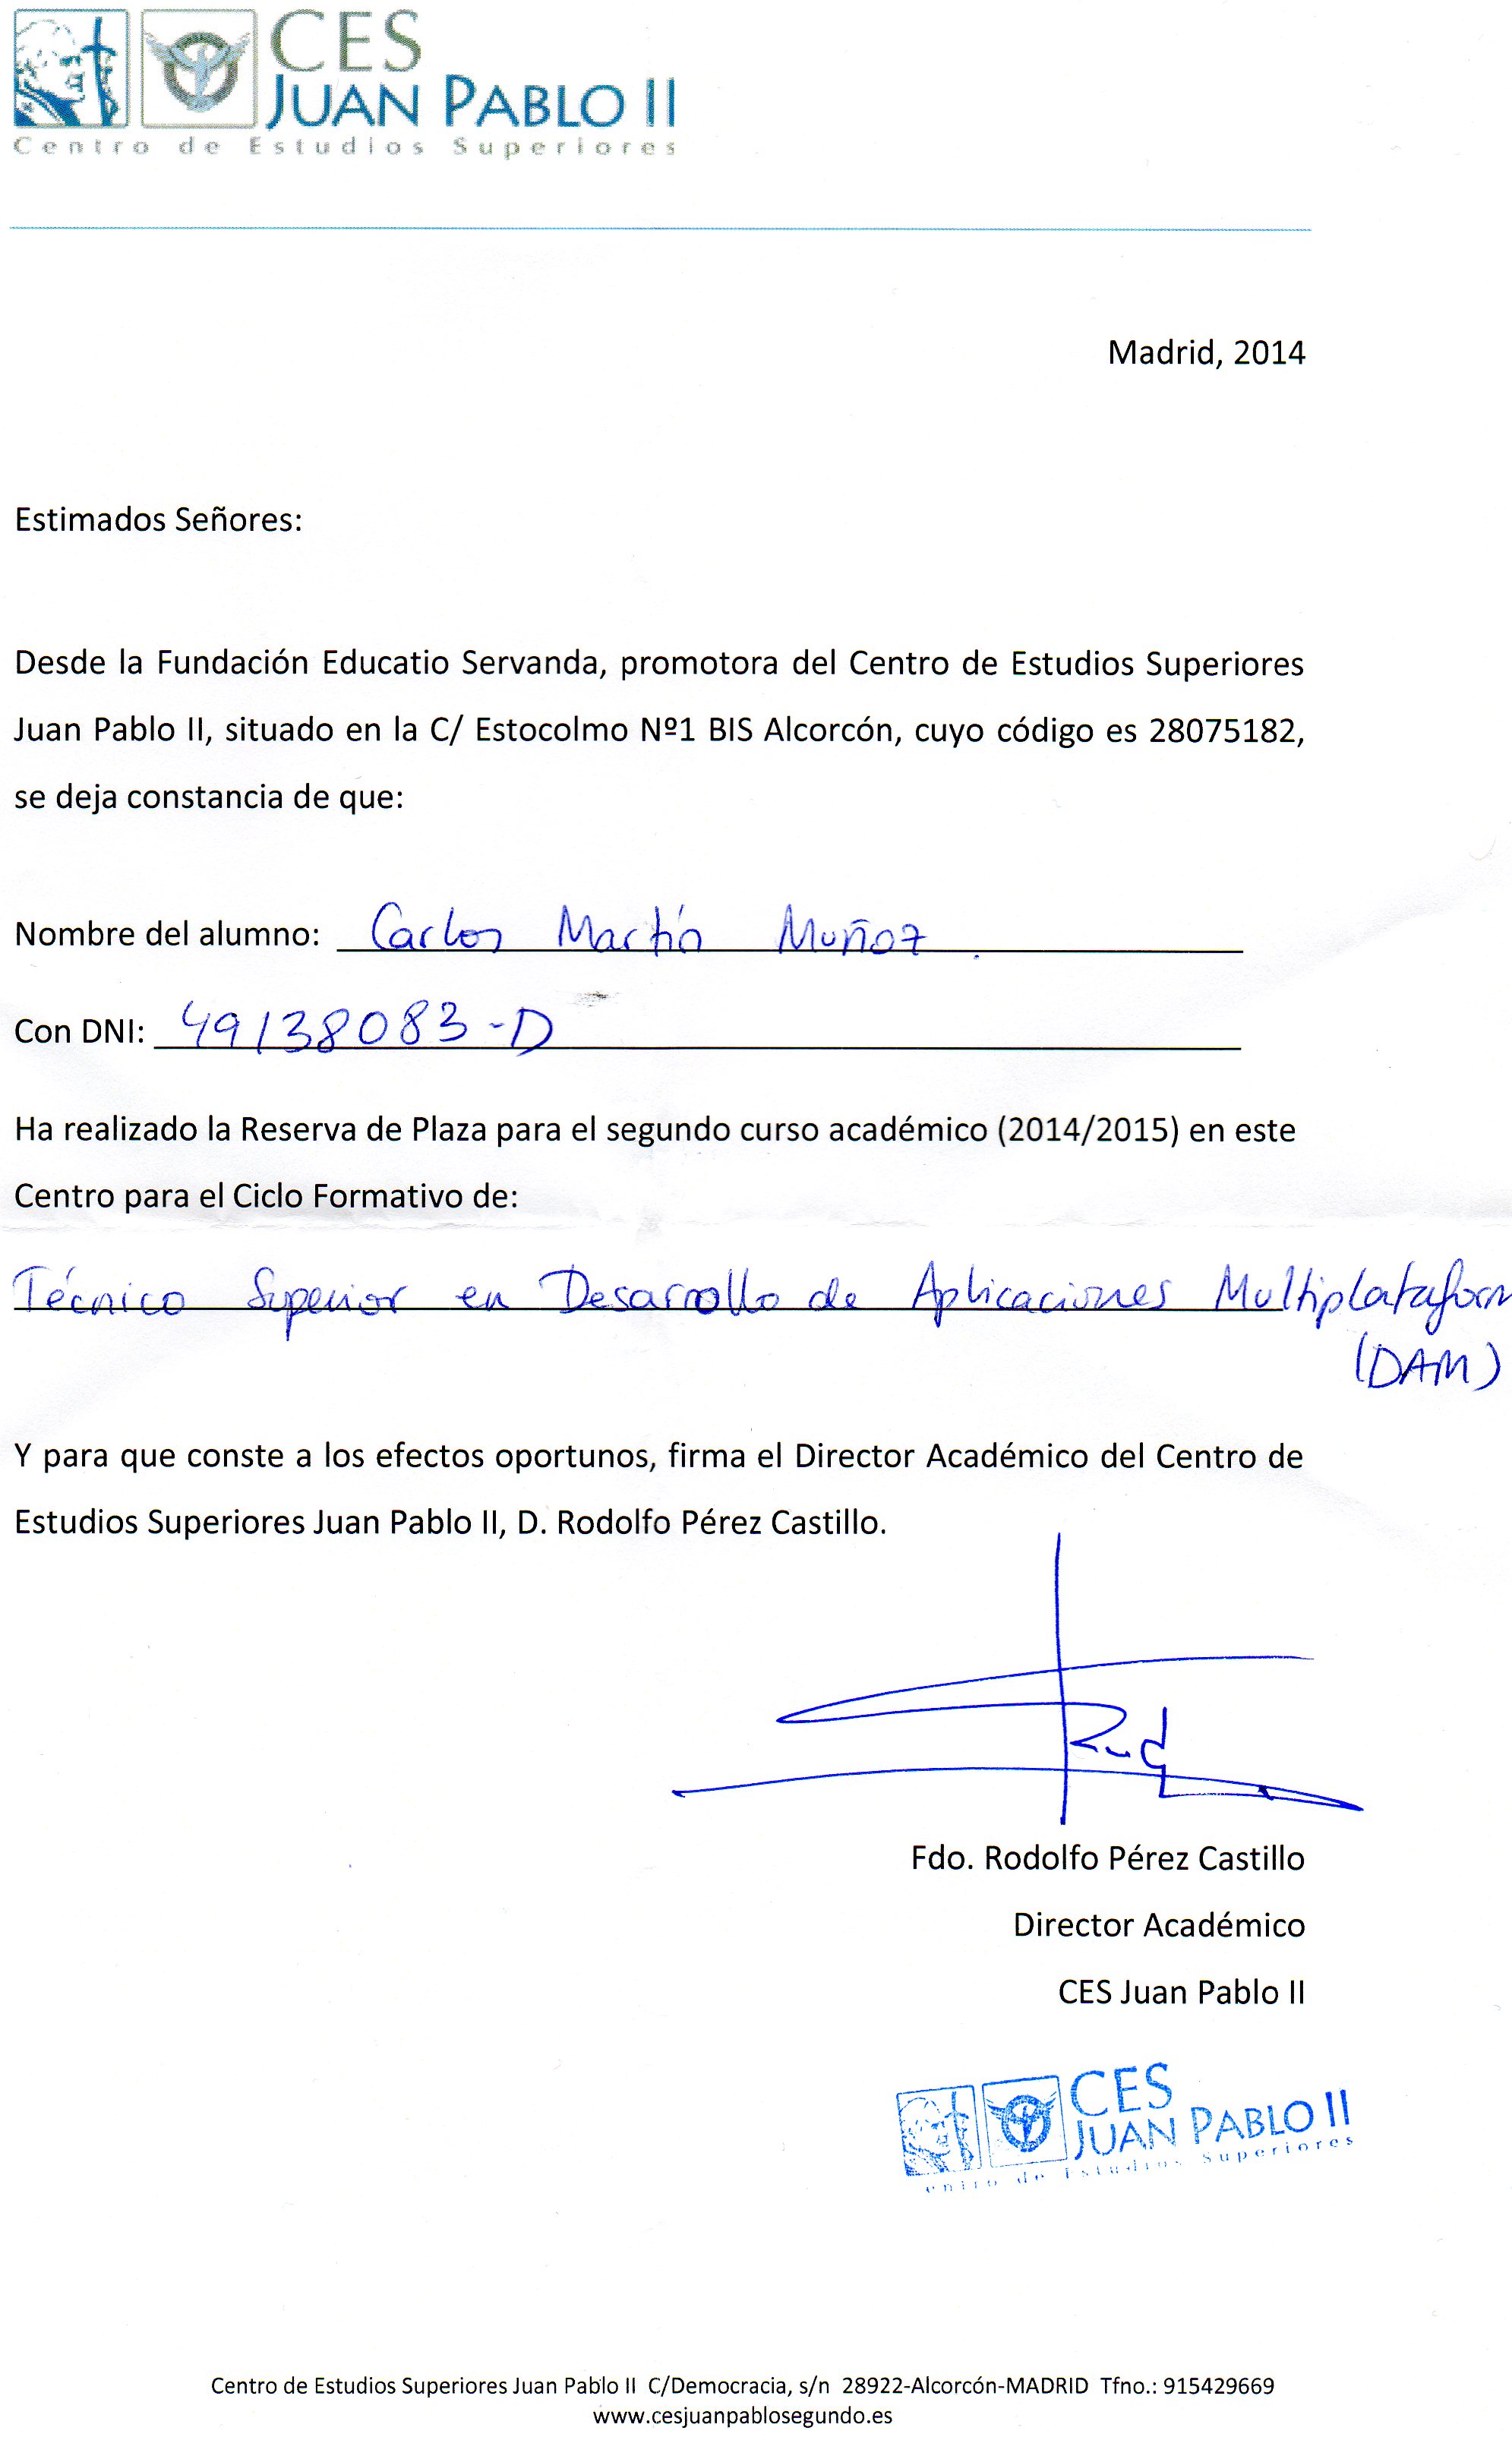 CES
JUAN PABLO II
Centro de Estudios Superiores
Madrid, 2014
Estimados Señores:
Desde la Fundación Educatio Servanda, promotora del Centro de Estudios Superiores
Juan Pablo II, situado en la C/ Estocolmo Nº1 BIS Alcorcón, cuyo código es 28075182,
se deja constancia de que:
Nombre del alumno: Carlos Martín Muñoz.
Con DNI: 49138083-D
Ha realizado la Reserva de Plaza para el segundo curso académico (2014/2015) en este
Centro para el Ciclo Formativo de:
Técnico Superior en Desarrollo de Aplicaciones Multiplataform
(DAM)
Y para que conste a los efectos oportunos, firma el Director Académico del Centro de
Estudios Superiores Juan Pablo II, D. Rodolfo Pérez Castillo.
Fdo. Rodolfo Pérez Castillo
Director Académico
CES Juan Pablo II
CES
JUAN PABLO II
entro de Estudios Superiores
Centro de Estudios Superiores Juan Pablo II C/Democracia, s/n 28922-Alcorcón-MADRID Tfno.: 915429669
www.cesjuanpablosegundo.es